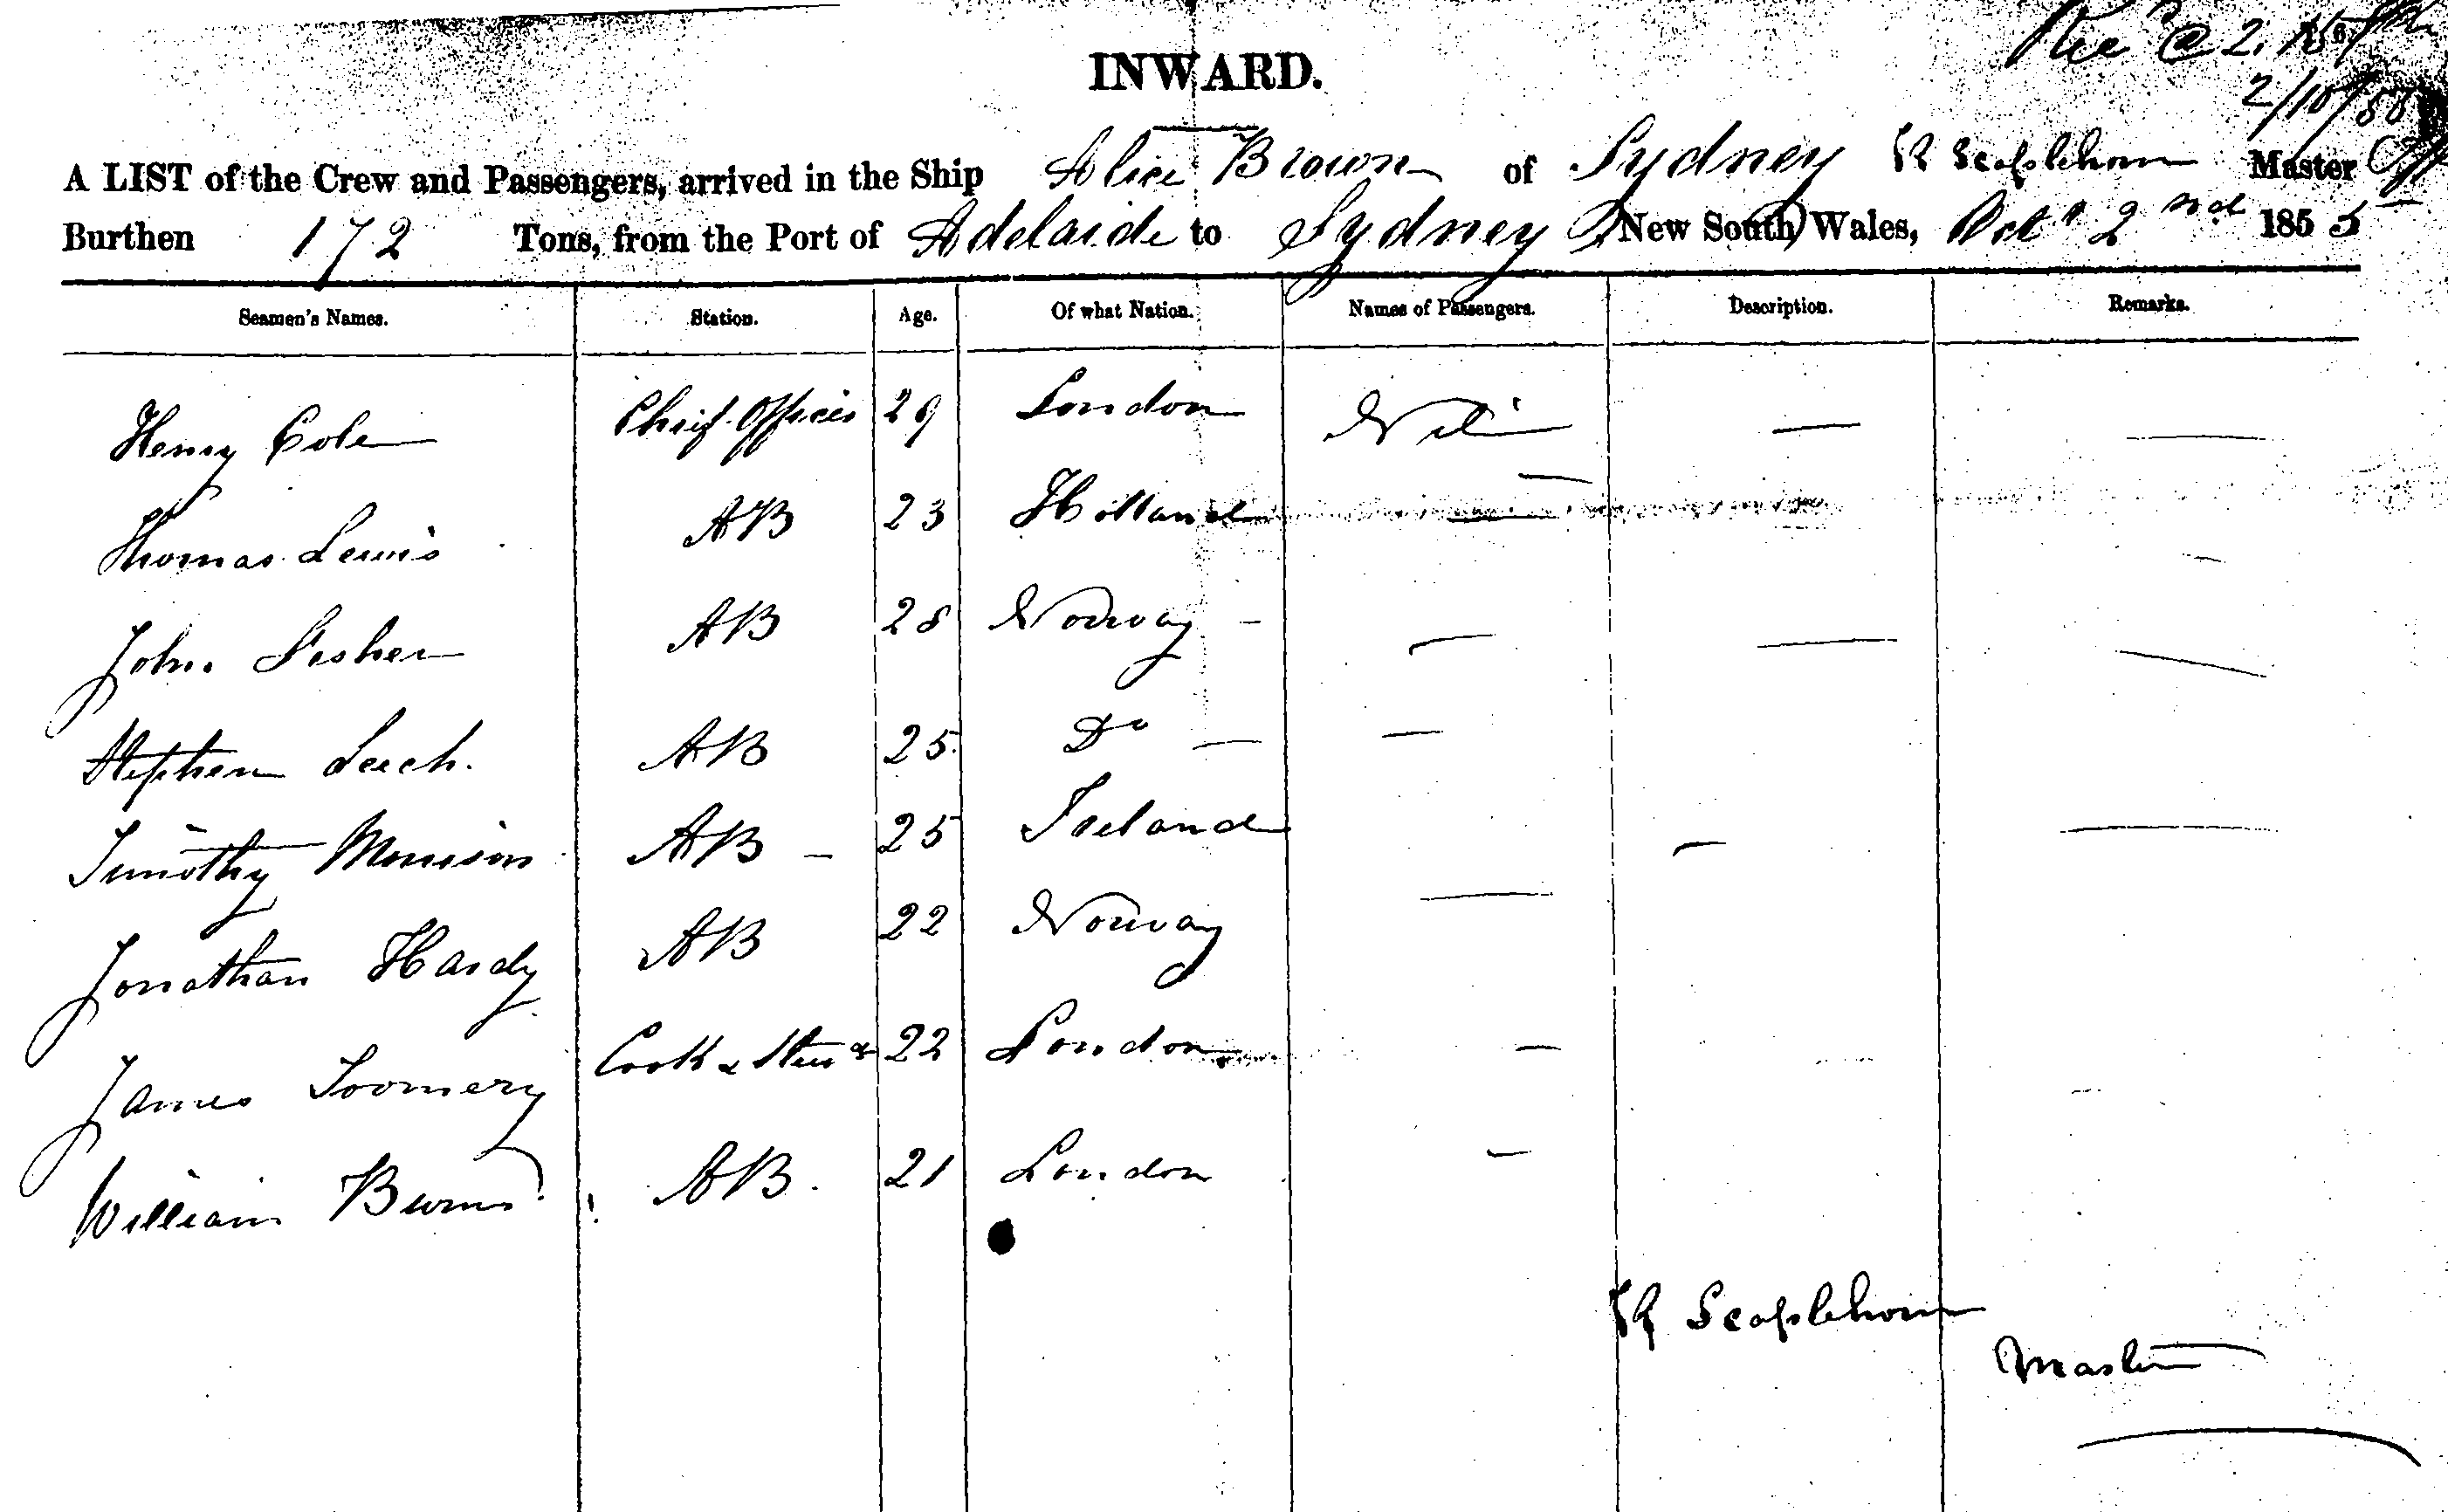 Rec @ 2.
2/10/55
INWARD.
A LIST of the Crew and Passengers, arrived in the Ship Alice Brown of Sydney R Scaplehorn Master
Burthen 172 Tons, from the Port of Adelaide to Sydney New South Wales, Oct 2nd 1855
Seamen's Names. Station. Age. Of what Nation. Names of Passengers. Description. Remarks.
Henry Cole Chief Officer 29 London Nil
Thomas Lewis AB 23 Holland
John Fisher AB 28 Norway
Stephen Leech. AB 25 Do
Timothy Morrison AB 25 Ireland
Jonathan Hardy AB 22 Norway
James Toomery Cook & Stewd 22 London
William Burns AB 21 London
R Scaplehorn
Master